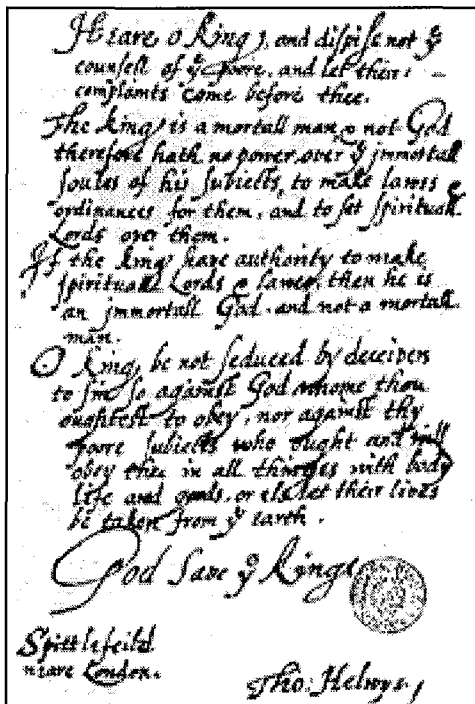 Heare o King, and dispise not yͤ
counsell of yͤ poore, and let their
complaints come before thee.
The king is a mortall man & not God
therefore hath no power over yͤ immortall
soules of his subiects, to make lawes &
ordinances for them, and to set spirituall
Lords over them.
If the king have authority to make
spirituall Lords & lawes, then he is
an immortall God, and not a mortall
man.
O king, be not seduced by deceivers
to sin so against God whome thou
oughtest to obey, nor against thy
poore subiects who ought and will
obey thee in all thinges with body
life and goods, or els let their lives
be taken from yͤ earth.
God save yͤ King
Spittlefeild
neare London.
Tho: Helwys,